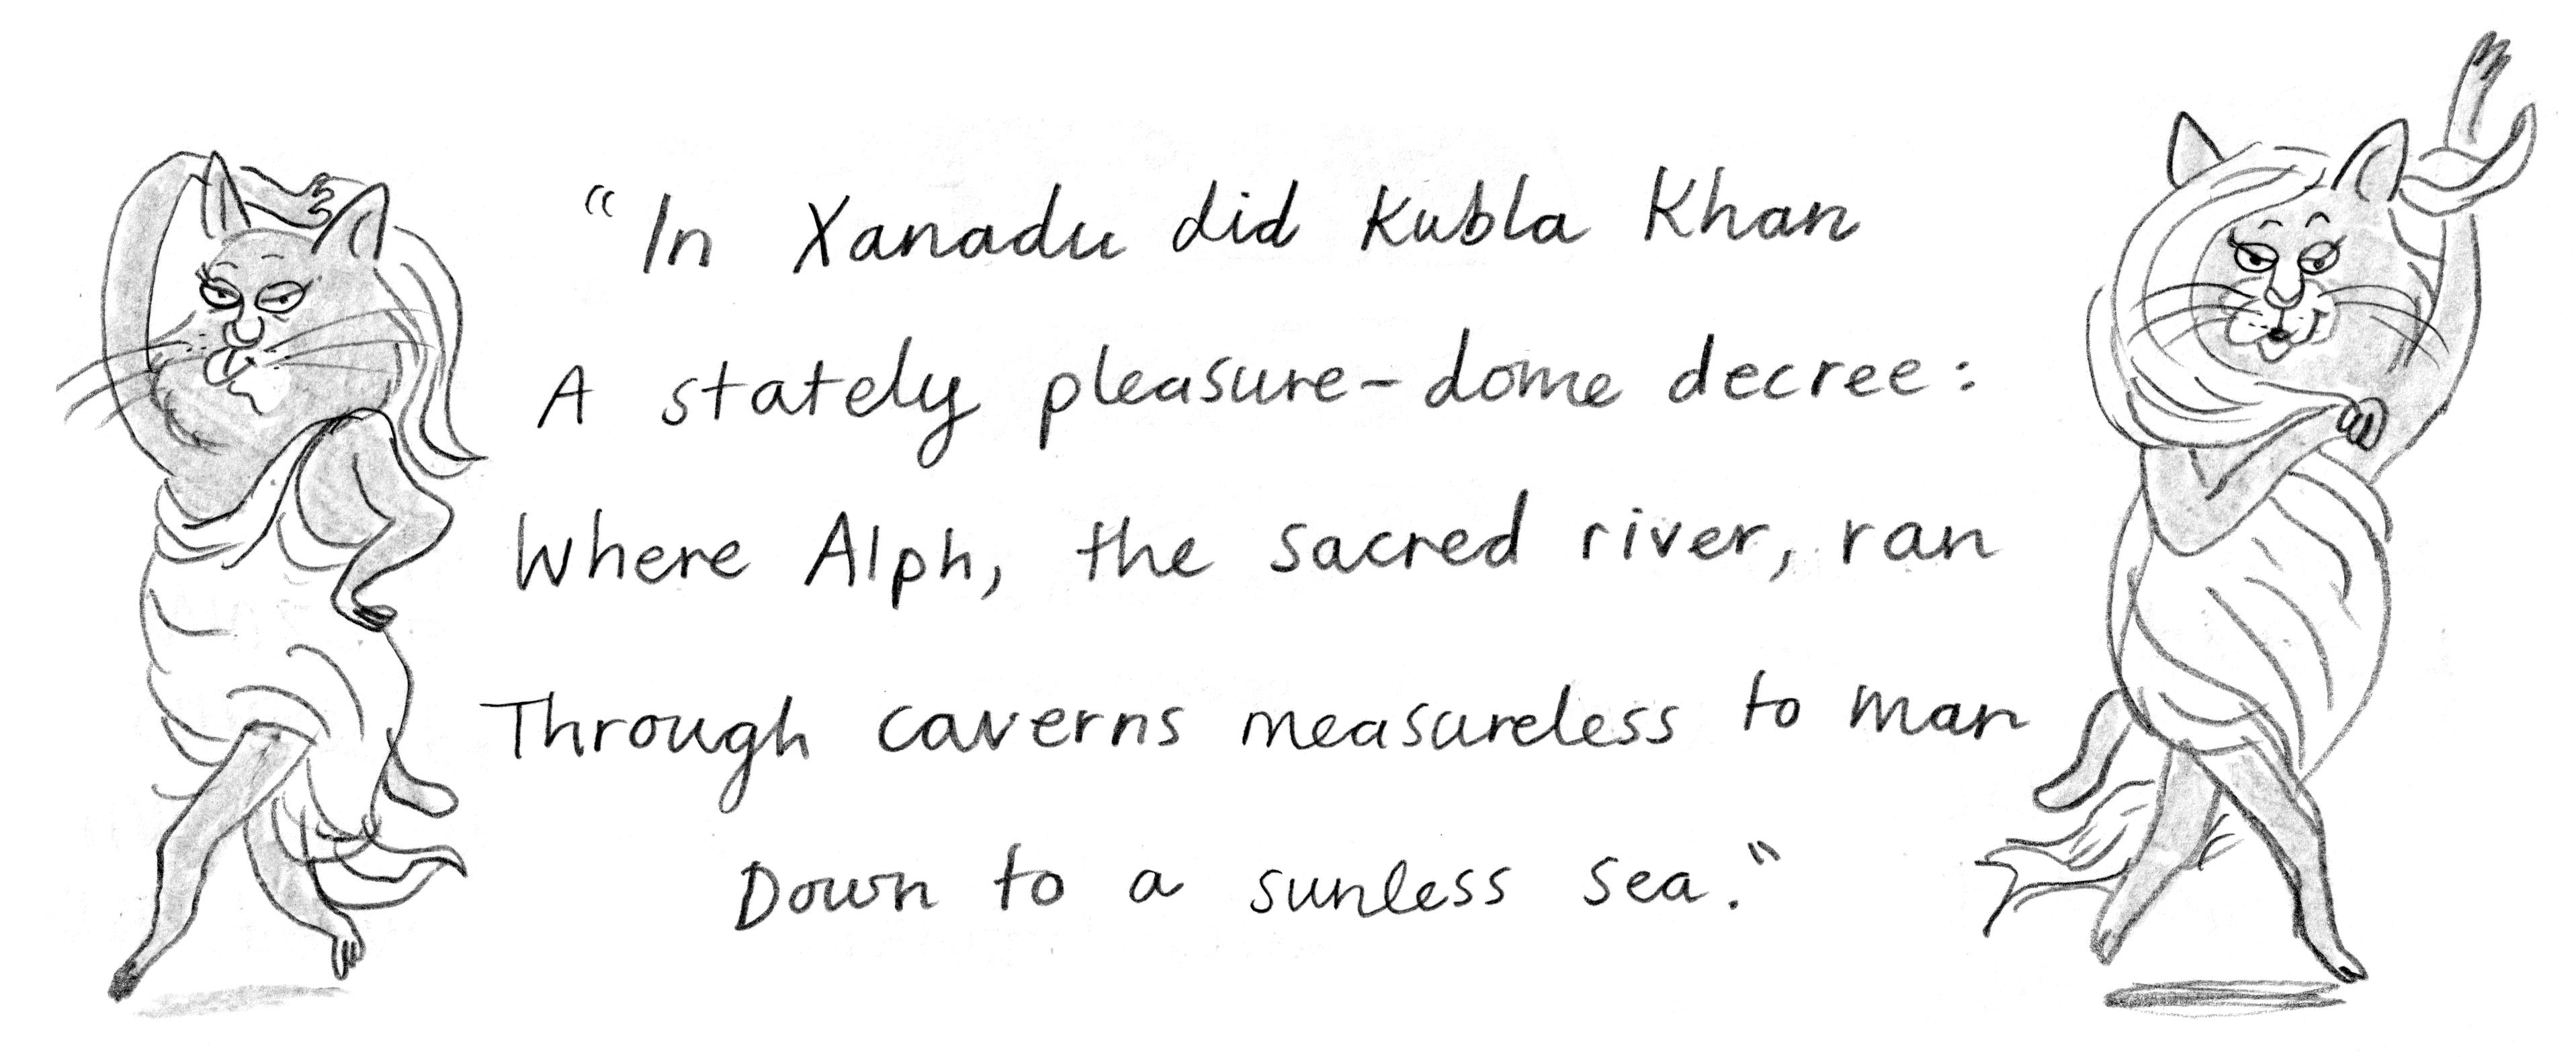 "In Xanadu did Kubla Khan
A stately pleasure-dome decree:
Where Alph, the sacred river, ran
Through caverns measureless to man
Down to a sunless sea."